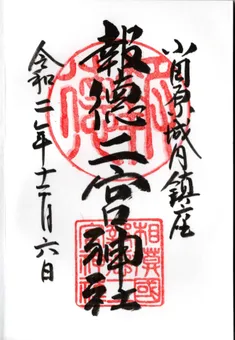 小田原城内鎮座
報徳二宮神社
令和二年十二月六日
相莫國